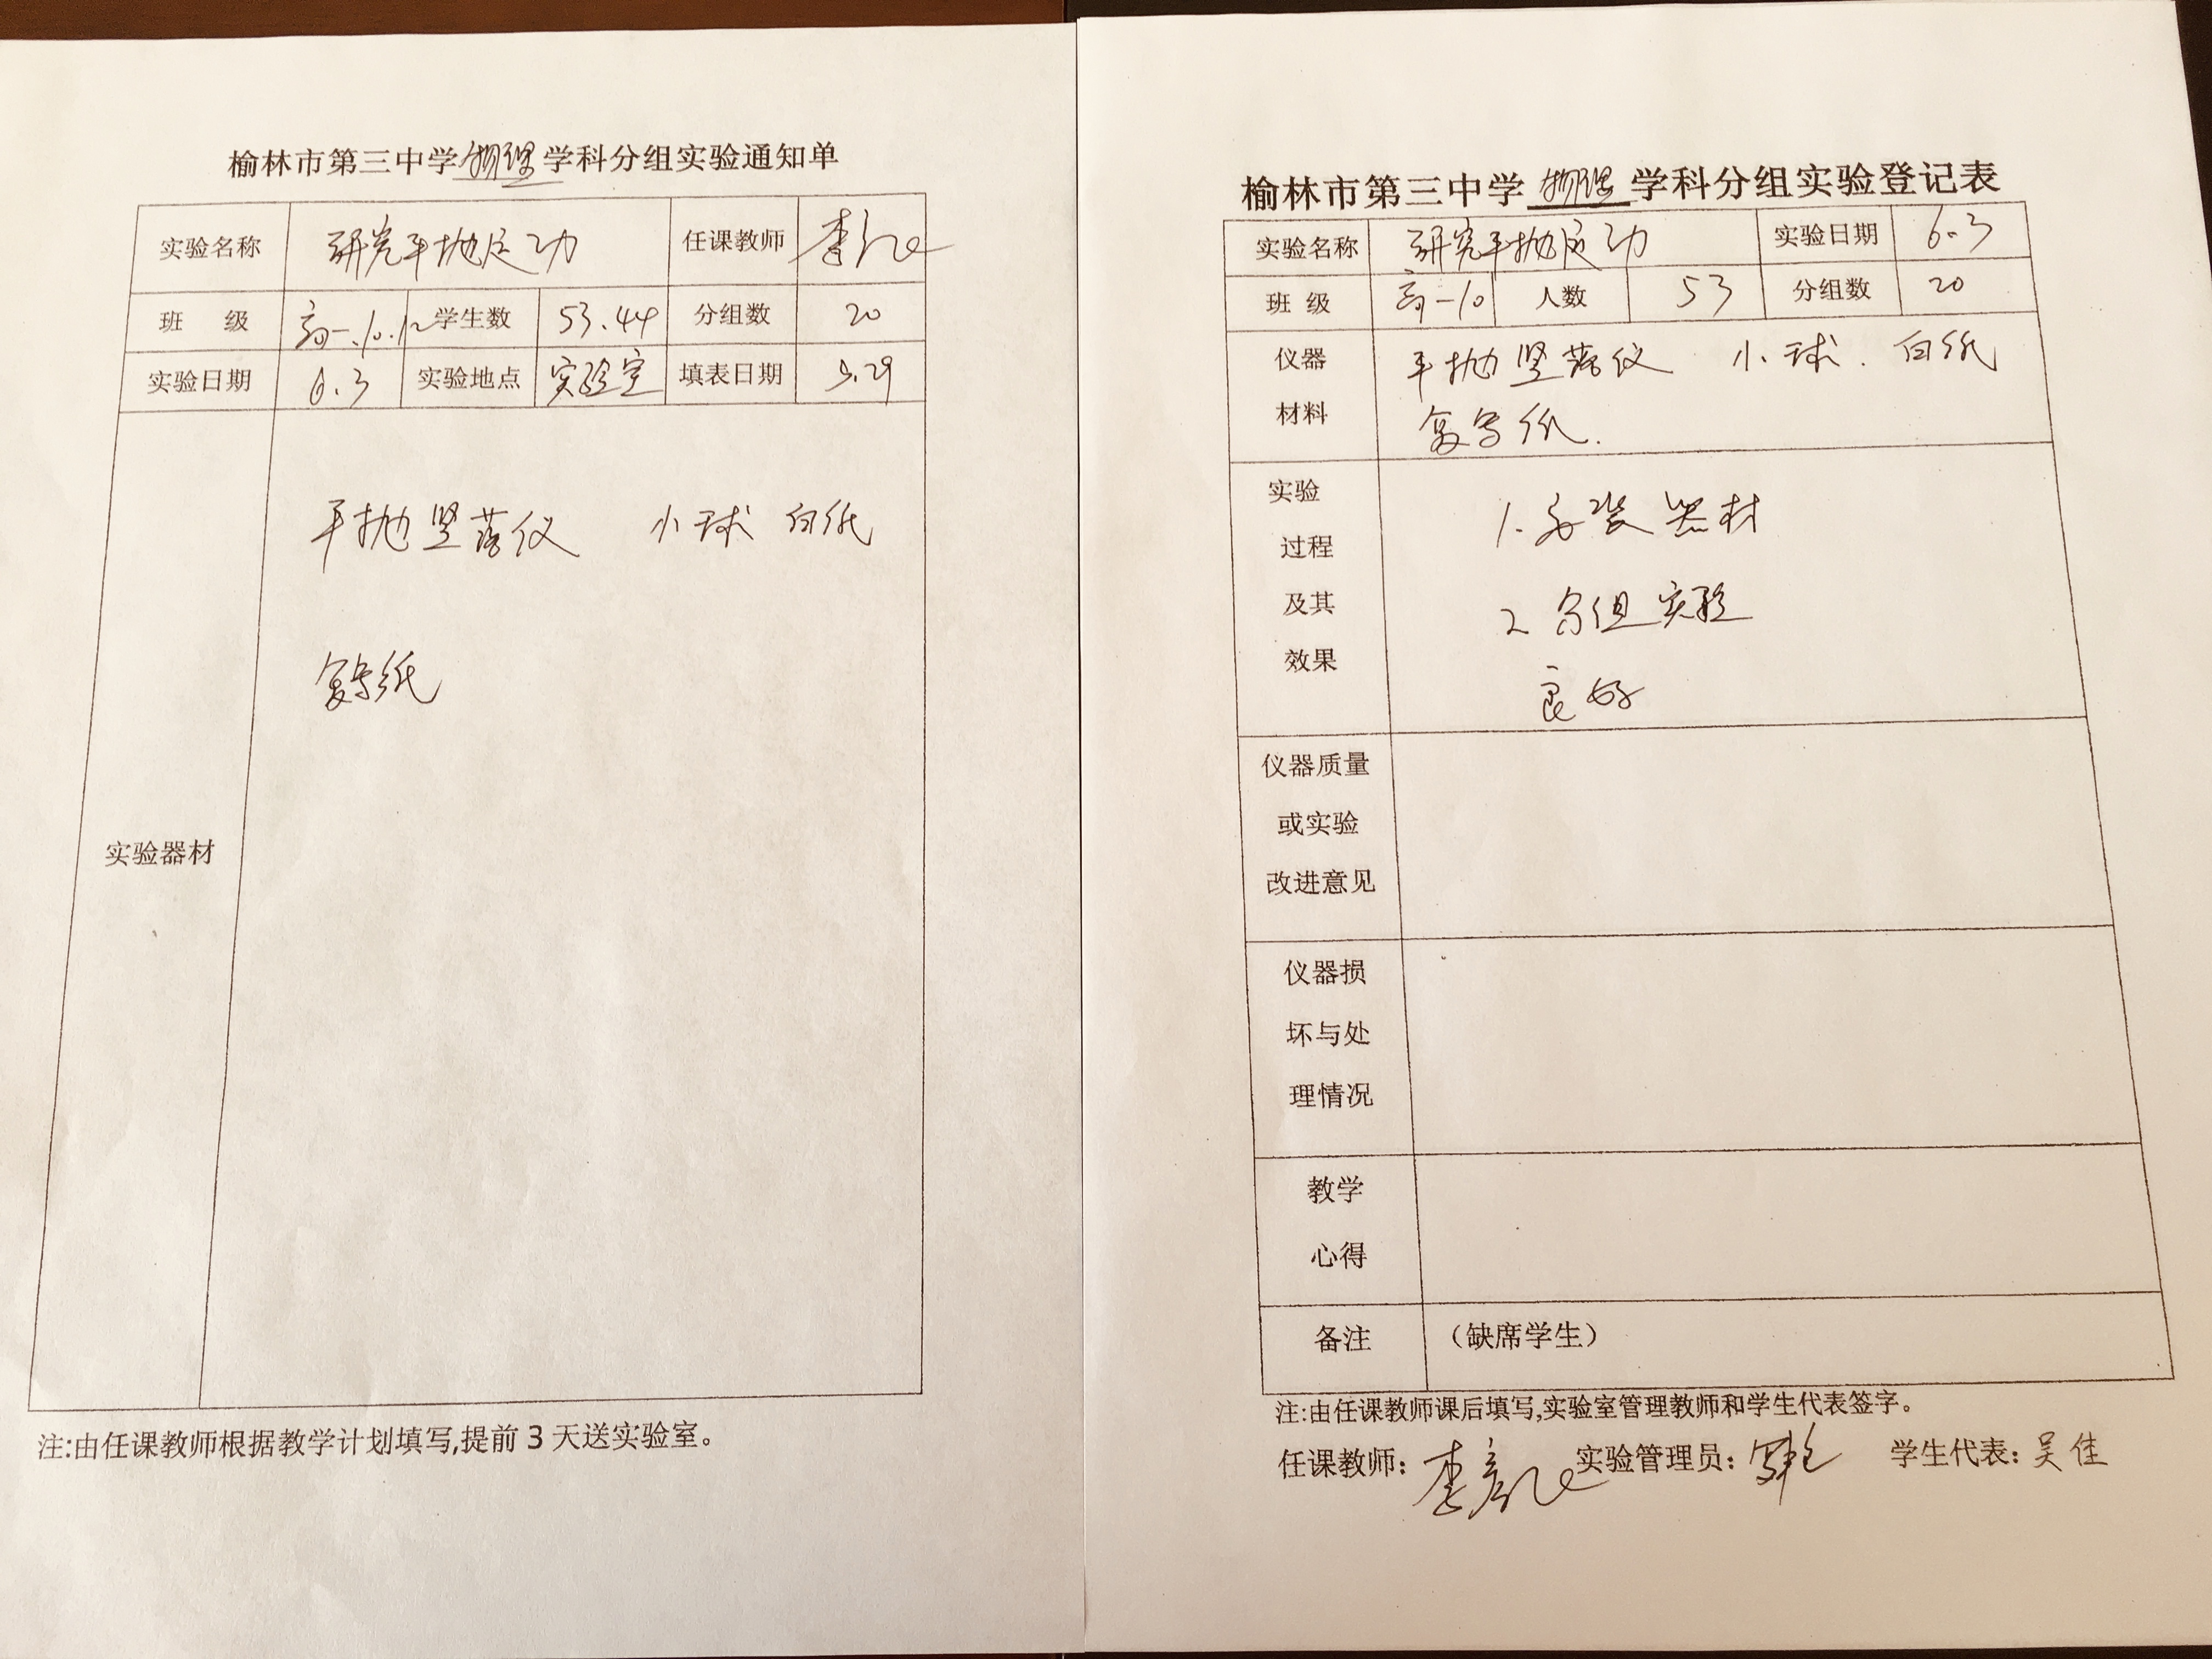 榆林市第三中学物理学科分组实验通知单
实验名称 研究平抛运动 任课教师 李
班 级 高一.10.12 学生数 53.44 分组数 20
实验日期 6.3 实验地点 实验室 填表日期 5.29
平抛竖落仪 小球 白纸
复写纸
实验器材
注:由任课教师根据教学计划填写,提前3天送实验室。
榆林市第三中学 物理 学科分组实验登记表
实验名称 研究平抛运动 实验日期 6.3
班 级 高一10 人数 53 分组数 20
仪器 平抛竖落仪 小球. 白纸
材料 复写纸.
实验 1.安装器材
过程
及其 2 分组实验
效果 良好
仪器质量
或实验
改进意见
仪器损
坏与处
理情况
教学
心得
备注 (缺席学生)
注:由任课教师课后填写,实验室管理教师和学生代表签字。
任课教师: 李 实验管理员: 学生代表: 吴佳